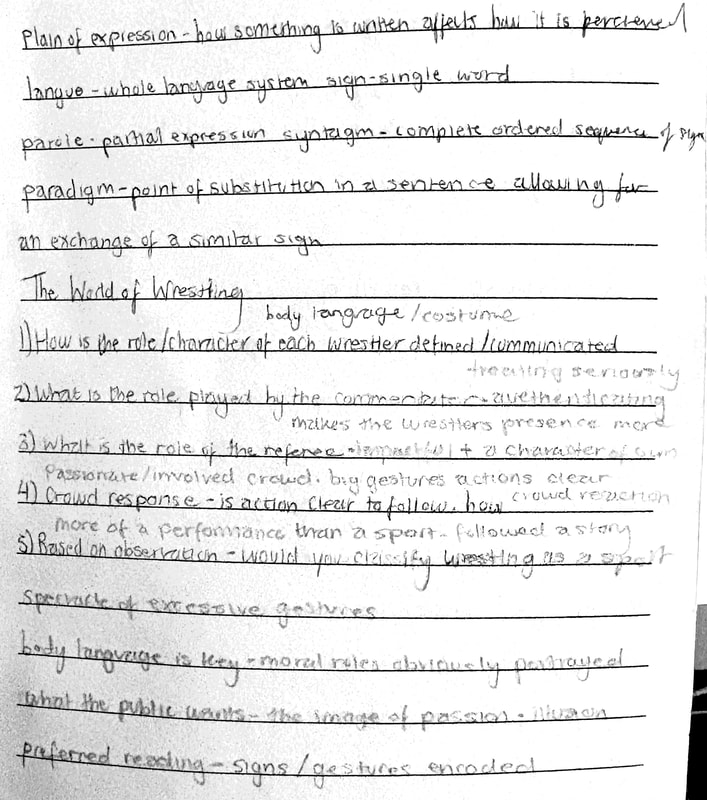 Plain of expression - how something is written affects how it is percieved
langue - whole language system sign - single word
parole - partial expression syntagm - complete ordered sequence of signs
paradigm - point of substitution in a sentence allowing for
an exchange of a similar sign
The World of Wrestling
body language / costume
1) How is the role/character of each wrestler defined/communicated
treating seriously
2) What is the role played by the commentator - authenticating
makes the wrestlers presence more
3) What is the role of the referee - + a character of own
Passionate/involved crowd. big gestures actions clear
crowd reaction
4) Crowd response - is action clear to follow, how
more of a performance than a sport - followed a story
5) Based on observation - would you classify wrestling as a sport
spectacle of excessive gestures
body language is key - moral roles obviously portrayed
what the public wants - the image of passion - illusion
preferred reading - signs / gestures encoded